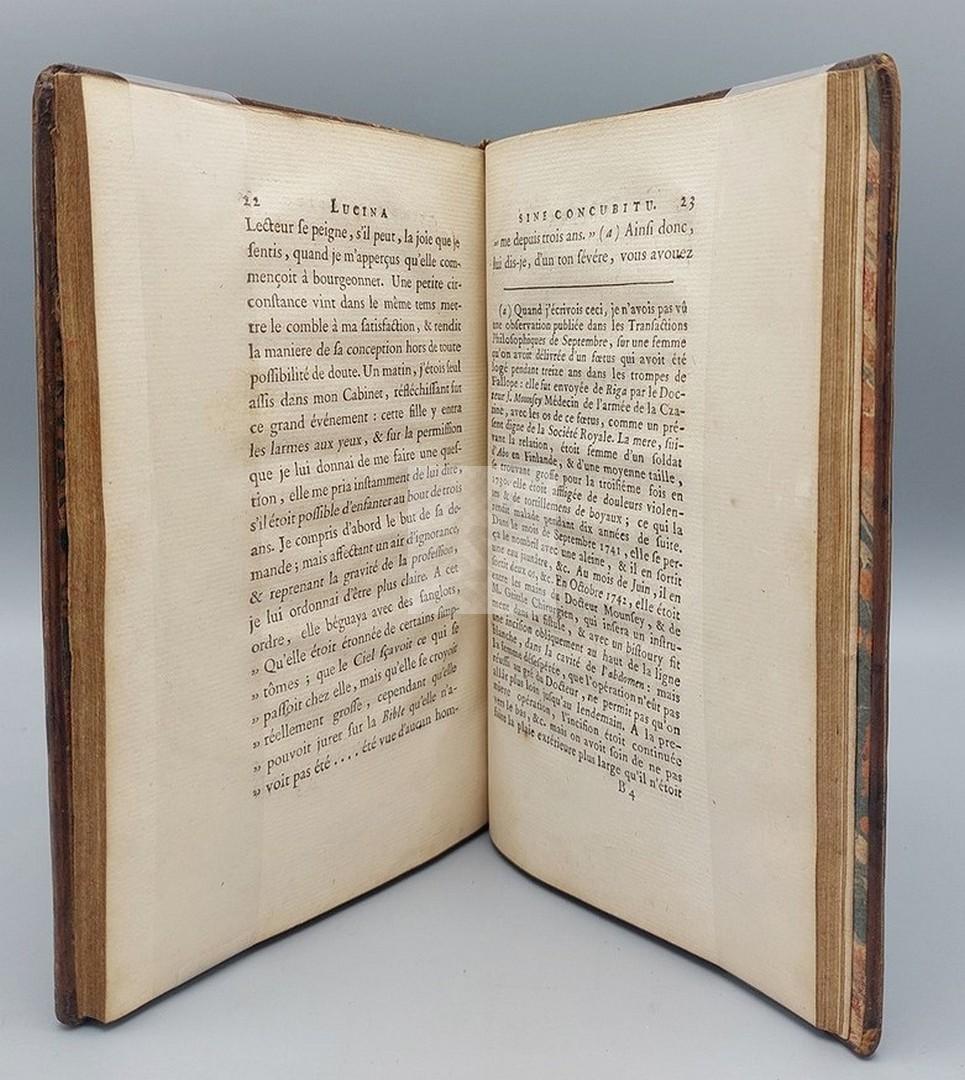 22 LUCINA
Lecteur se peigne, s'il peut, la joie que je
sentis, quand je m'apperçus qu'elle com-
mençoit à bourgeonner. Une petite cir-
constance vint dans le même tems met-
tre le comble à ma satisfaction, & rendit
la maniere de sa conception hors de toute
possibilité de doute. Un matin, j'étois seul
assis dans mon Cabinet, réfléchissant sur
ce grand événement : cette fille y entra
les larmes aux yeux, & sur la permission
que je lui donnai de me faire une ques-
tion, elle me pria instamment de lui dire,
s'il étoit possible d'enfanter au bout de trois
ans. Je compris d'abord le but de sa de-
mande ; mais affectant un air d'ignorance,
& reprenant la gravité de la profession,
je lui ordonnai d'être plus claire. A cet
ordre, elle béguaya avec des sanglots,
„ Qu'elle étoit étonnée de certains simp-
„ tômes ; que le Ciel sçavoit ce qui se
„ passoit chez elle, mais qu'elle se croyoit
„ réellement grosse, cependant qu'elle
„ pouvoit jurer sur la Bible qu'elle n'a-
„ voit pas été .... été vue d'aucun hom-
SINE CONCUBITU. 23
„ me depuis trois ans. ” (a) Ainsi donc,
lui dis-je, d'un ton sévére, vous avouez
(a) Quand j'écrivois ceci, je n'avois pas vû
une observation publiée dans les Transactions
Philosophiques de Septembre, sur une femme
qu'on avoit délivrée d'un fœtus qui avoit été
logé pendant treize ans dans les trompes de
Fallope : elle fut envoyée de Riga par le Doc-
teur J. Mounsey Médecin de l'armée de la Cza-
rine, avec les os de ce fœtus, comme un pré-
sent digne de la Société Royale. La mere, sui-
vant la relation, étoit femme d'un soldat
d'Abo en Finlande, & d'une moyenne taille,
se trouvant grosse pour la troisiéme fois en
1730. elle étoit affligée de douleurs violen-
tes & de tortillemens de boyaux ; ce qui la
rendit malade pendant dix années de suite.
Dans le mois de Septembre 1741, elle se per-
ça le nombril avec une alêsne, & il en sortit
une eau jaunâtre, &c. Au mois de Juin, il en
sortit deux os, &c. En Octobre 1742, elle étoit
entre les mains du Docteur Mounsey, & de
M. Geitle, Chirurgien, qui insera un instru-
ment dans la fistule, & avec un bistoury fit
une incision obliquement au haut de la ligne
blanche, dans la cavité de l'abdomen : mais
la femme désespérée, que l'opération n'eût pas
réussi au gré du Docteur, ne permit pas qu'on
allât plus loin jusqu'au lendemain. A la pre-
miere opération, l'incision étoit continuée
vers le bas, &c. mais on avoit soin de ne pas
faire la plaie extérieure plus large qu'il n'étoit
B 4